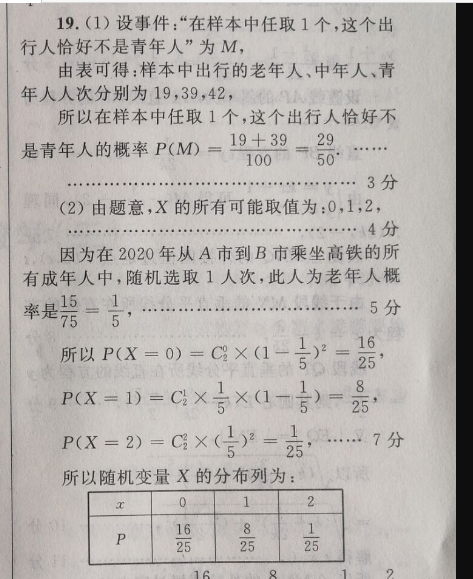 19. (1) 设事件:“在样本中任取1个,这个出
行人恰好不是青年人”为 M,
由表可得:样本中出行的老年人、中年人、青
年人人次分别为 19,39,42,
所以在样本中任取1个,这个出行人恰好不
是青年人的概率 P(M) = \frac{19+39}{100} = \frac{29}{50}. ……
…………………………………… 3 分
(2) 由题意,X 的所有可能取值为:0,1,2,
…………………………………… 4 分
因为在 2020 年从 A 市到 B 市乘坐高铁的所
有成年人中,随机选取 1 人次,此人为老年人概
率是 \frac{15}{75} = \frac{1}{5}, …………………………… 5 分
所以 P(X = 0) = C_2^0 × (1 - \frac{1}{5})^2 = \frac{16}{25},
P(X = 1) = C_2^1 × \frac{1}{5} × (1 - \frac{1}{5}) = \frac{8}{25},
P(X = 2) = C_2^2 × (\frac{1}{5})^2 = \frac{1}{25}, …… 7 分
所以随机变量 X 的分布列为:
x 0 1 2
P \frac{16}{25} \frac{8}{25} \frac{1}{25}
16 8 1 2